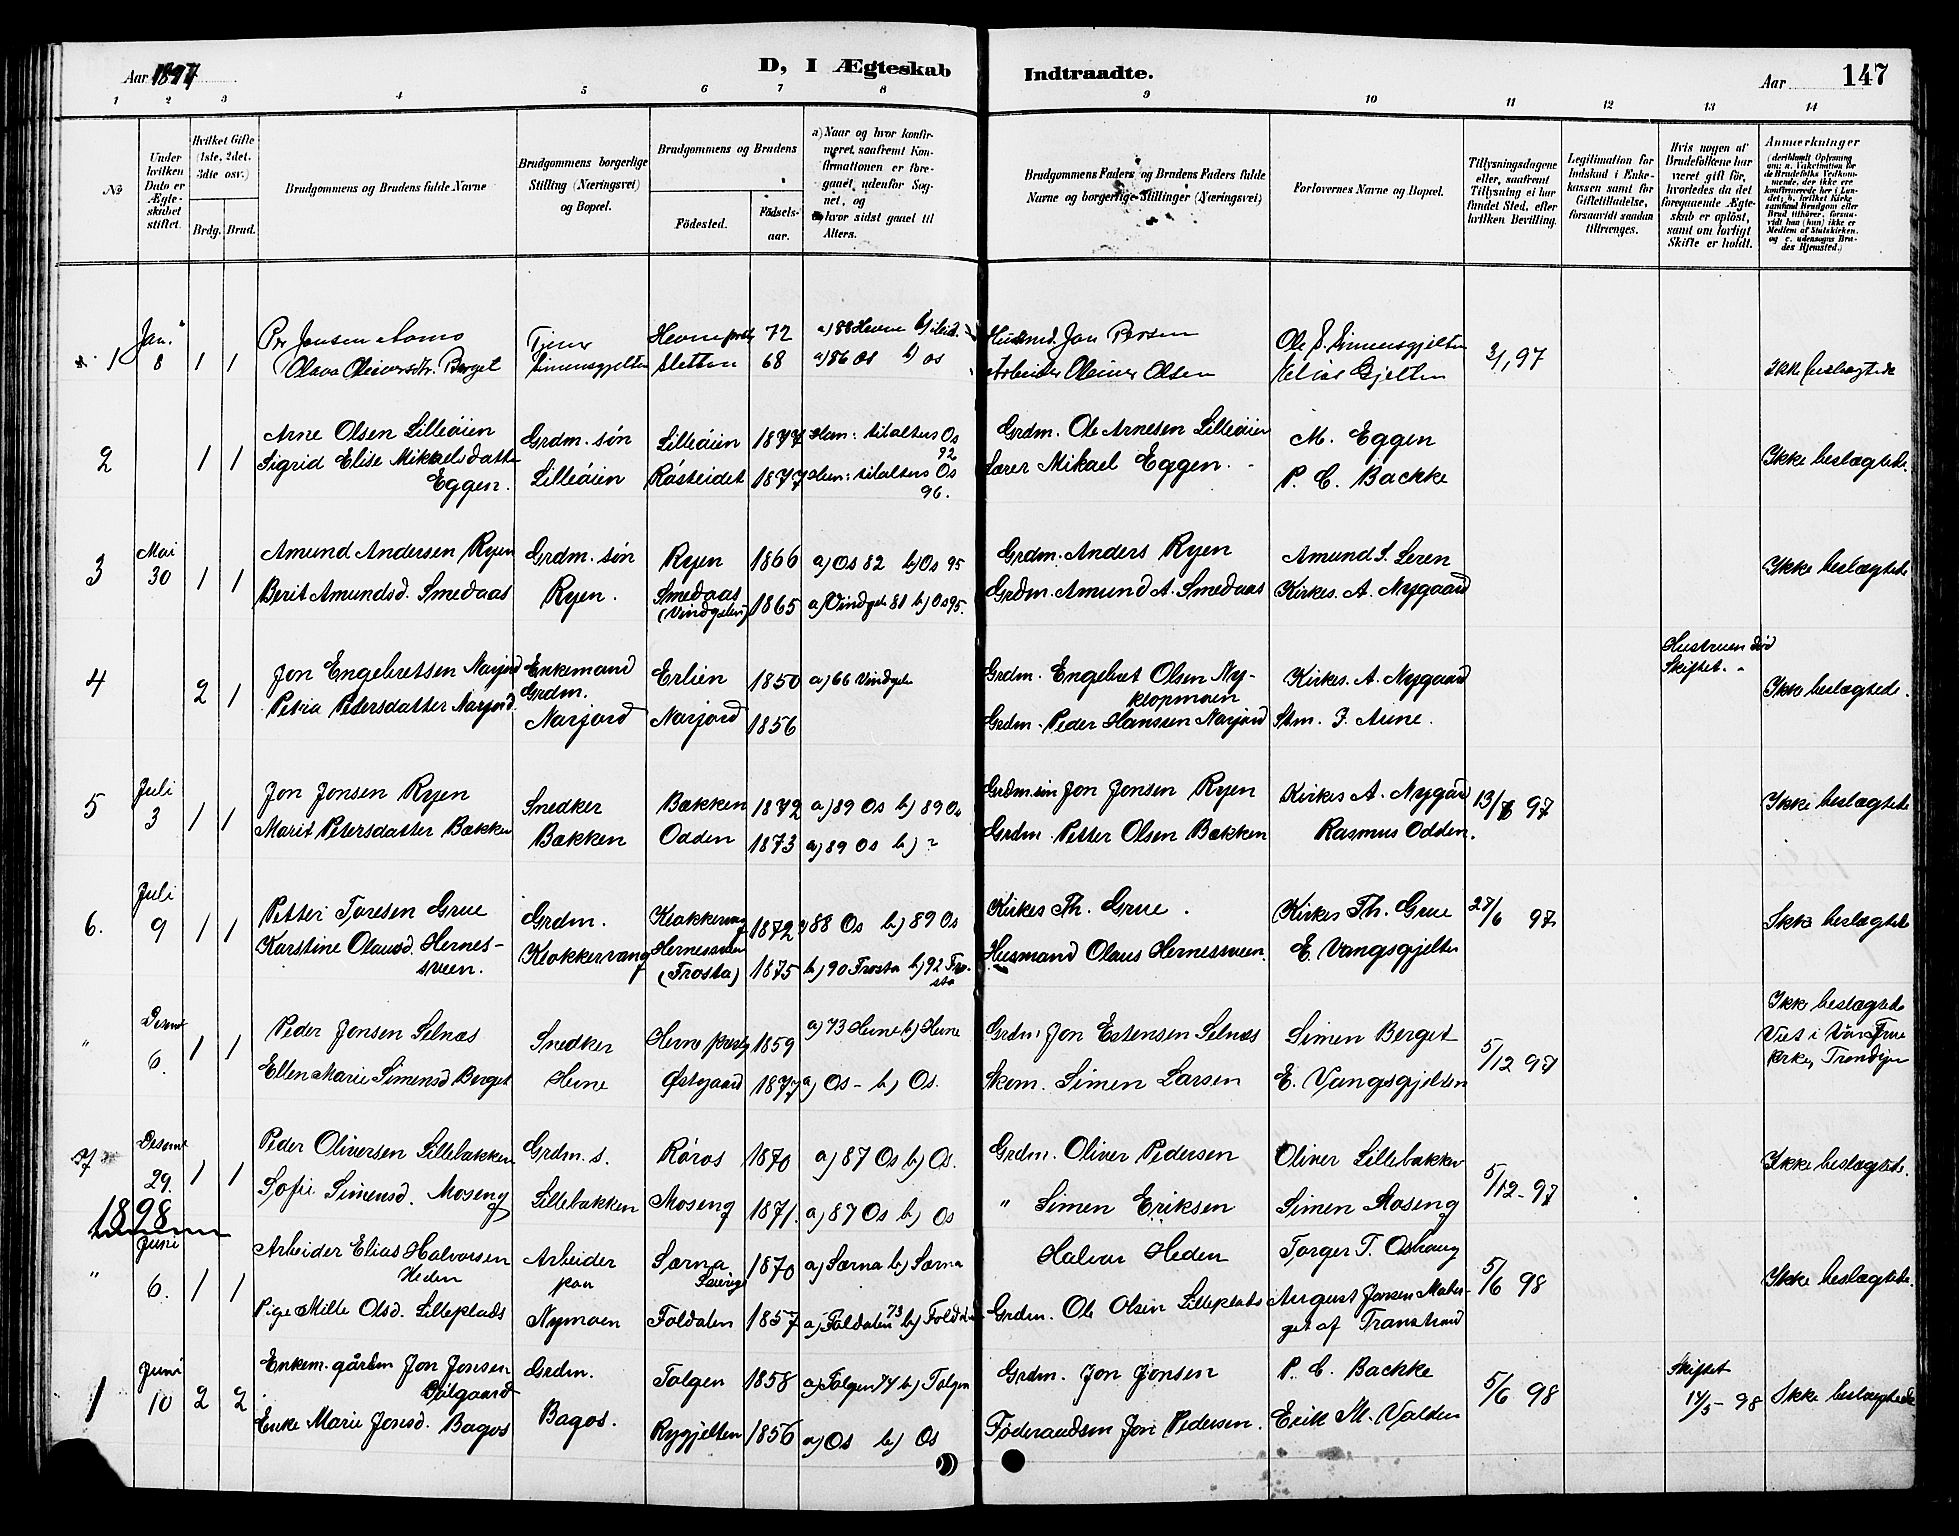 Aar 1897
D, I Ægteskab
Indtraadte.
Aar
147
1 2 3 4 5 6 7 8 9 10 11 12 13 14
No
Under hvilken Dato er Ægteskabet stiftet.
Hvilket Gifte (1ste, 2det, 3die osv.)
Brdg. Brud.
Brudgommens og Brudens fulde Navne
Brudgommens borgerlige Stilling (Næringsvei) og Bopæl.
Brudgommens og Brudens
Födested.
Födselsaar.
a) Naar og hvor konfirmeret, saafremt Konfirmationen er foregaaet udenfor Sognet, og
b) hvor sidst gaaet til Alters.
Brudgommens Faders og Brudens Faders fulde Navne og borgerlige Stillinger (Næringsvei)
Forlovernes Navne og Bopæl.
Tillysningsdagene eller, saafremt Tillysning ei har fundet Sted, efter hvilken Bevilling.
Legitimation for Indskud i Enkekassen samt for Giftetilladelse, forsaavidt saadan tiltrænges.
Hvis nogen af Brudefolkene har været gift för, hvorledes da det foregaaende Ægteskab er oplöst, samt om lovligt Skifte er holdt.
Anmærkninger
1 Jan. 8 1 1
Per Jonsen Aomo
Olava Oliversdtr. Berget
Tjener
Simensgjelten
Hevne prstg 72 a) 88 Hevne b) ibid.
Sletten 68 a) 86 Os b) Os
Husmd. Jon Persen
Arbeider Oliver Olsen
Ole S. Simensgjelten
Gjelten
3/1 97
Ikke beslægtede
2 1 1
Arne Olsen Lilleöien
Sigrid Elise Mikkelsdatter
Eggen.
Grdm. sön
Lilleöien
Lilleöien 1877 Han: tilalters Os 92
Rösteidet 1877 Hun: tilalters Os 96.
Grdm. Ole Arnesen Lilleöien
Lærer Mikael Eggen.
M. Eggen
P. C. Backke
Ikke beslægtede.
3 Mai 30 1 1
Amund Andersen Ryen
Berit Amundsd. Smedaas
Grdm. sön
Ryen.
Ryen 1866 a) Os 82 b) Os 95
Smedaas (Vindgelen) 1865 a) Vindgel 81 b) Os 95.
Grdm. Anders Ryen
Grdm. Amund A. Smedaas
Amund S. Leren
Kirkes. A. Nygaard
Ikke beslægtede
4 2 1
Jon Engebretsen Narjord
Petra Petersdatter Narjord.
Enkemand
Grdm.
Narjord
Erlien 1850 a) 66 Vindgel
Narjord 1856
Grdm. Engebret Olsen Nyklopmoen
Grdm. Peder Hanssen Narjord
Kirkes. A. Nygaard
Stm. J. Aune.
Hustruen död
Skiftet. "
Ikke beslægtede.
5 Juli 3 1 1
Jon Jonsen Ryen
Marit Petersdatter Bækken
Snedker
Bækken
Bækken 1872 a) 89 Os b) 89 Os
Odden 1873 a) 89 Os b) ?
Grdm. sön Jon Jonsen Ryen
Grdm. Petter Olsen Bækken
Kirkes A. Nygård
Rasmus Odden.
13/6 97
Ikke beslægtede
6. Juli 9 1 1
Petter Toresen Grue
Karstine Olausd. Hernessveen.
Grdm.
Klokkervang
Klokkervang 1872 88 Os b) 89 Os
Hernessveen (Frosta) 1875 b) 90 Frosta b) 92 Frosta
Kirkes Th. Grue.
Husmand Olaus Hernessveen.
Kirkes Th. Grue
E. Vangsgjelten
27/6 97
Ikke beslægtede
" Desemb 6. 1 1
Peder Jonsen Selnæs
Ellen Marie Simensd Berget
Snedker
Hevne
Hevne prestg 1859 a) 73 Hevne b) Hevne
Östgaard 1877 a) Os - b) Os.
Grdm. Jon Estensen Selnæs
Skom. Simen Larsen
Simen Berget
E. Vangsgjelten
5/12 97
Ikke beslægtede
Viet i Vår Frue
kirke, Trondhjem
7 Desemb 29. 1 1
Peder Oliversen Lillebækken
Sofie Simensd. Moseng
Grdm. s.
Lillebækken
Röros 1870 a) 87 Os b) Os.
Moseng 1871. a) 87 Os b) Os
Grdm. Oliver Pedersen
" Simen Eriksen
Oliver Lillebækken
Simen Moseng
5/12 - 97
Ikke beslægtede.
1898
" Juni 6. 1 1
Arbeider Elias Halvorsen
Heden
Pige Milte Olsd. Lilleplads
Arbeider
paa
Nymoen
Særna Sverige 1870 a) Særna b) Særna
Foldalen 1857 a) Foldalen 73 b) Foldalen
Halvor Heden
Grdm. Ole Olsen Lilleplads
Torger T. Oshaug
August Jonsen
get af Transtrand
5/6 98
Ikke beslægtede.
1 Juni 10 2 2
Enkem. gårdm Jon Jonsen
Dalgaard
Enke Marie Jonsd. Bagos
Grdm.
Bagos.
Tolgen 1858 a) Tolgen 74 b) Tolgen
Rygjelten 1856 a) Os b) Os
Grdm. Jon Jonsen
Föderaadsm Jon Pedersen.
P. C. Backke
Erik M. Volden
5/6 98
Skiftet
14/5 - 98
Ikke beslægtede